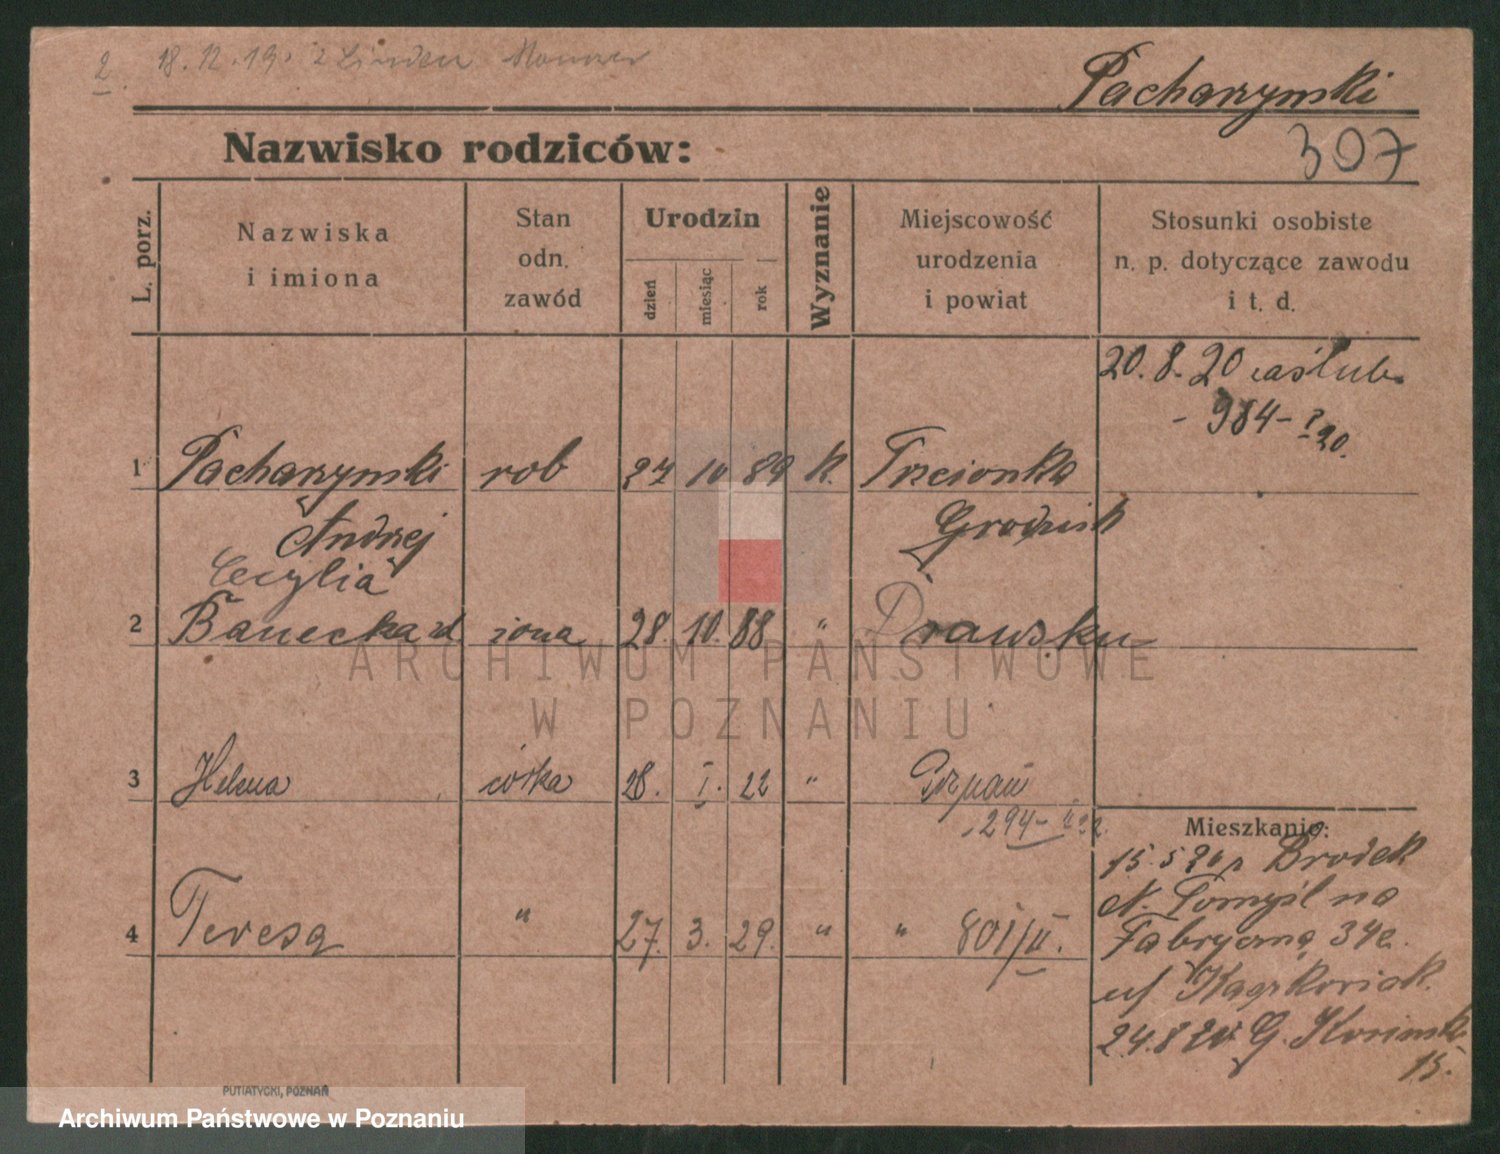 2 18.12.19. z Linden Hanower
Pacharzymski
307
Nazwisko rodziców:
L. porz.
Nazwiska
i imiona
Stan
odn.
zawód
Urodzin
dzień
miesiąc
rok
Wyznanie
Miejscowość
urodzenia
i powiat
Stosunki osobiste
n. p. dotyczące zawodu
i t. d.
20. 8. 20 zaślub.
- 984 -
1 Pacharzymski rob 27 10 89 k. Trzcionka
Andrzej Grodzisk
Cecylia
2 Banecka żona 28. 10. 88 " Drawsku
3 Helena córka 28. I. 22 " Poznań
294-
4 Teresa " 27. 3. 29. " " 801/II.
Mieszkanie:
15. 5 20 z Brodek
N. Tomyśl na
Fabryczną 34
u/
24.8 20 G.
15.
ARCHIWUM PAŃSTWOWE
W POZNANIU
PUTIATYCKI, POZNAŃ
Archiwum Państwowe w Poznaniu